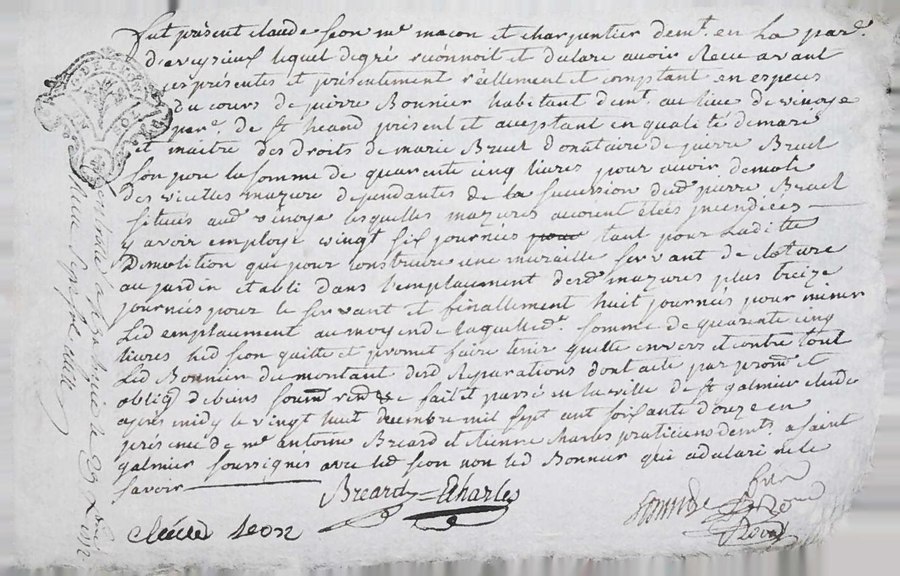 fut présent claude seon mre macon et charpentier demt. en La parse.
d'aveyzieu lequel degré reconnoit et declare avoir Receu avant
ces présentes et présentement réellement et comptant en especes
du cours de pierre Bonnier habitant demt. au lieu de vinoye
parse. de st heand présent et acceptant en qualité de mari
et maitre des droits de marie Bruel donataire de pierre Bruel
son pere la somme de quarente cinq livres pour avoir demoli
des vieilles mazure dependantes de la succession dud pierre Bruel
situés aud vinoye lesquelles mazures avoient étés incendiées
y avoir employé vingt six journées pour tant pour Laditte
demolition que pour construire une muraille servant de cloture
au jardin établi dans l'emplacement desd mazures plus treize
journées pour le servant et finallement huit journées pour miner
Led emplacement au moyen de laquelled. somme de quarente cinq
livres led seon quitte et promet faire tenir quitte envers et contre tout
Led Bonnier du montant desd Reparations dont acte par prom. et
oblign de biens soumn rens &c fait et passé en la ville de st galmier étude
apres midy le vingt huit decembre mil sept cent soixante douze en
présence de me antoine Breard et etienne charles praticiens demts. a saint
galmier soussignés avec led seon non led Bonnier qui a declaré ne le
savoir
Breard Charles
claude seon